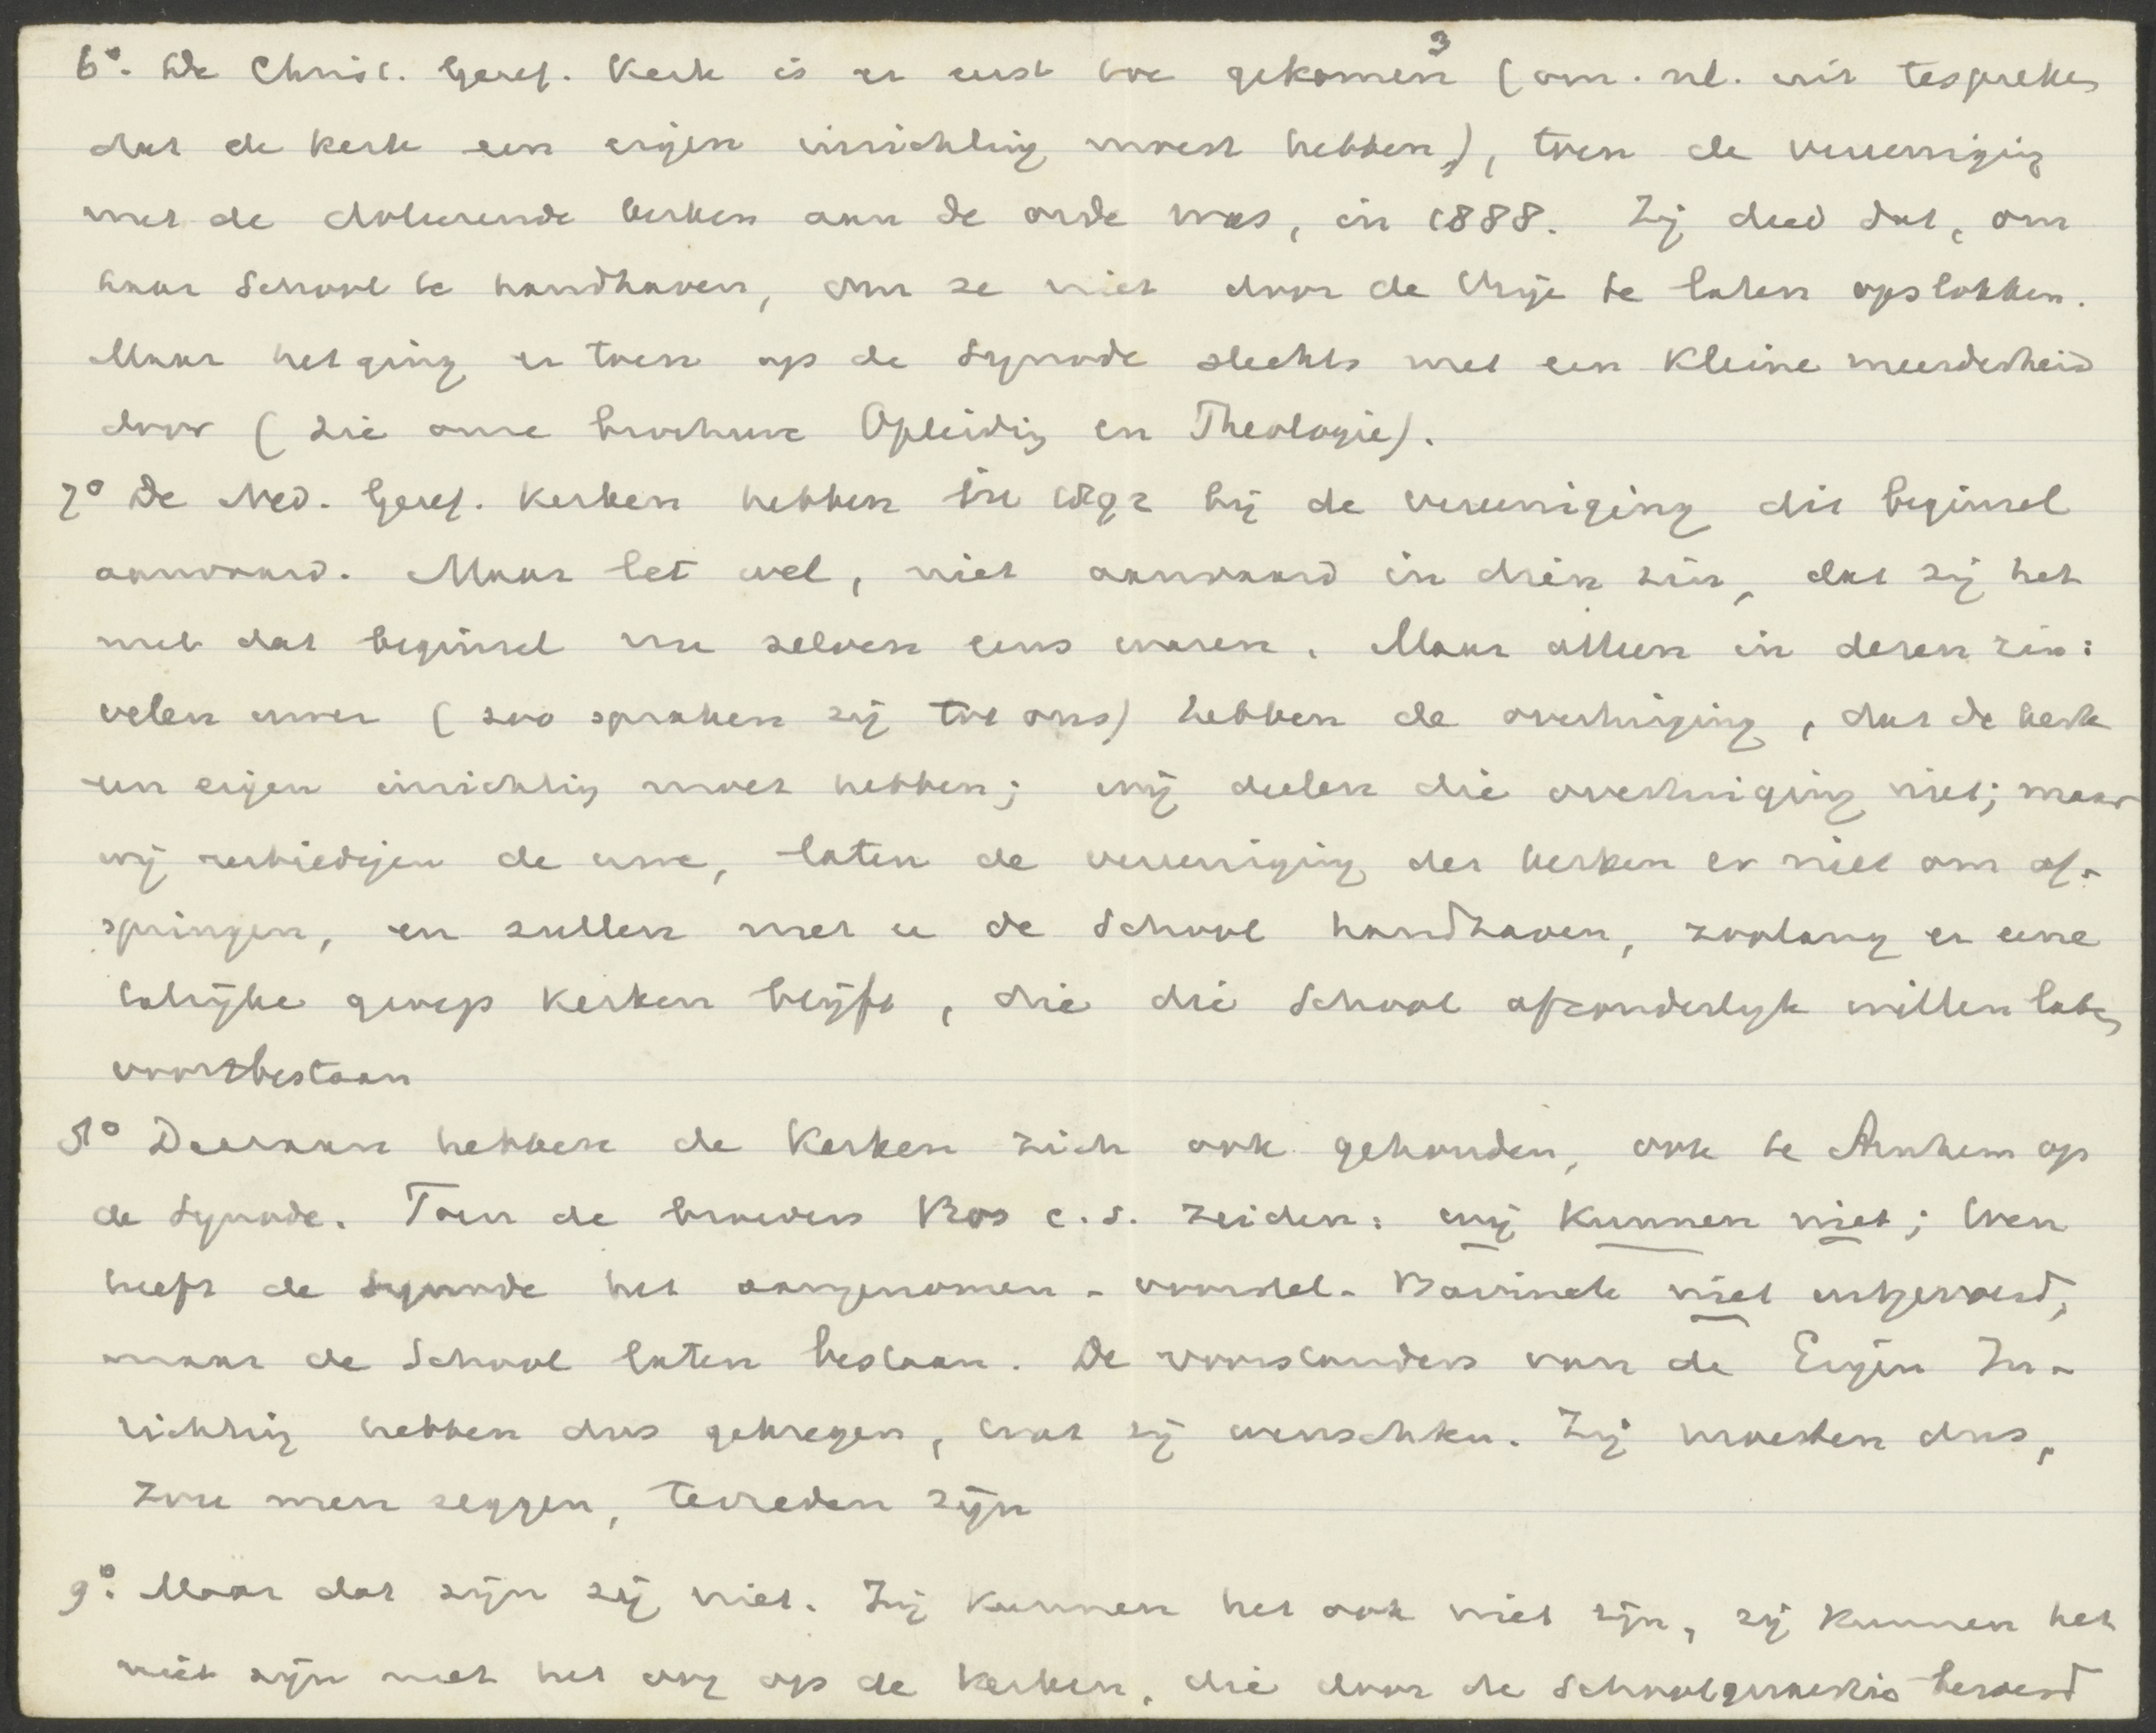 3
6°. De Christ. Geref. Kerk is er eerst toe gekomen (om. nl. uit te spreken
dat de kerk een eigen inrichting moest hebben), toen de vereeniging
met de doleerende kerken aan de orde was, in 1888. Zij deed dat, om
haar School te handhaven, om ze niet door de Vrije te laten opslokken.
Maar het ging er toen op de Synode slechts met een kleine meerderheid
door (zie onze brochure Opleiding en Theologie).
7° De Ned. Geref. Kerken hebben in 1892 bij de vereeniging dit beginsel
aanvaard. Maar let wel, niet aanvaard in dien zin, dat zij het
met dat beginsel nu zelven eens waren. Maar alleen in dezen zin:
velen uwer (zoo spraken zij tot ons) hebben de overtuiging, dat de kerk
een eigen inrichting moet hebben; wij deelen die overtuiging niet; maar
wij eerbiedigen de uwe, laten de vereeniging der kerken er niet om af-
springen, en zullen met u de School handhaven, zoolang er eene
talrijke groep Kerken blijft, die die School afzonderlijk willen laten
voortbestaan
8° Daaraan hebben de Kerken zich ook gehouden, ook te Arnhem op
de Synode. Toen de broeders Bos c.s. zeiden: wij kunnen niet; toen
heeft de Synode het aangenomen - voorstel - Bavinck niet uitgevoerd,
maar de School laten bestaan. De voorstanders van de Eigen In-
richting hebben dus gekregen, wat zij wenschten. Zij moesten dus,
zou men zeggen, tevreden zijn
9°. Maar dat zijn zij niet. Zij kunnen het ook niet zijn, zij kunnen het
niet zijn met het oog op de Kerken, die door de Schoolquaestie beroerd